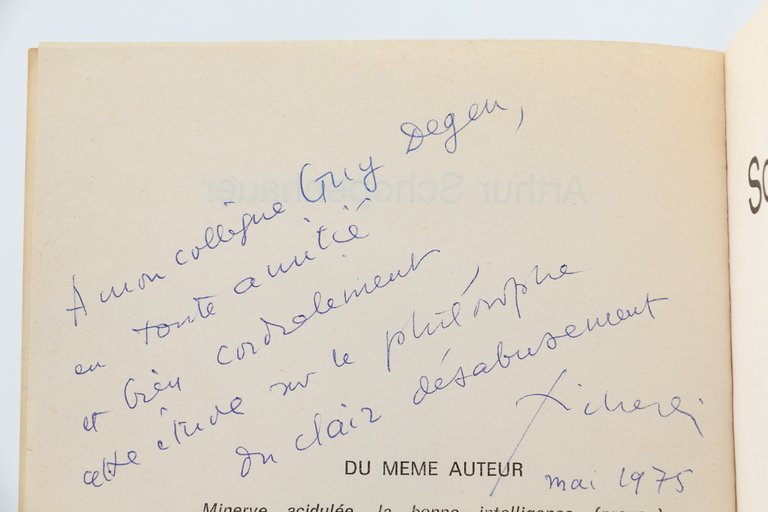 À mon collègue Guy Degen,
en toute amitié
et bien cordialement
cette étude sur le philosophe
du clair désabusement
mai 1975
DU MEME AUTEUR
Minerve acidulée, la bonne intelligence
Arthur Schopenhauer